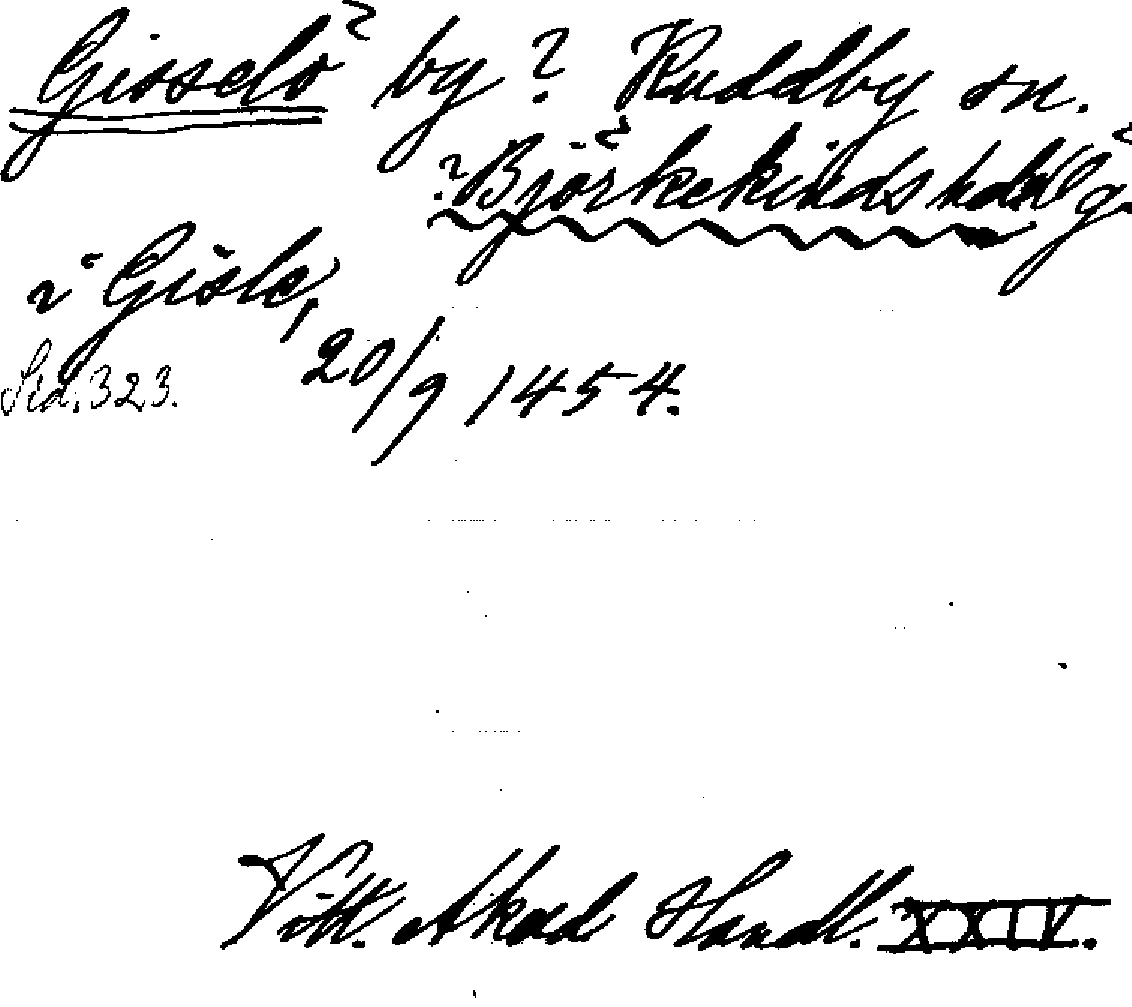 Gisselö by? Kuddby sn.
?Björkekinds hd Ög
i Gisle,
Sid. 323. 20/9 1454.
Vitt. Akad Handl. XXIV.